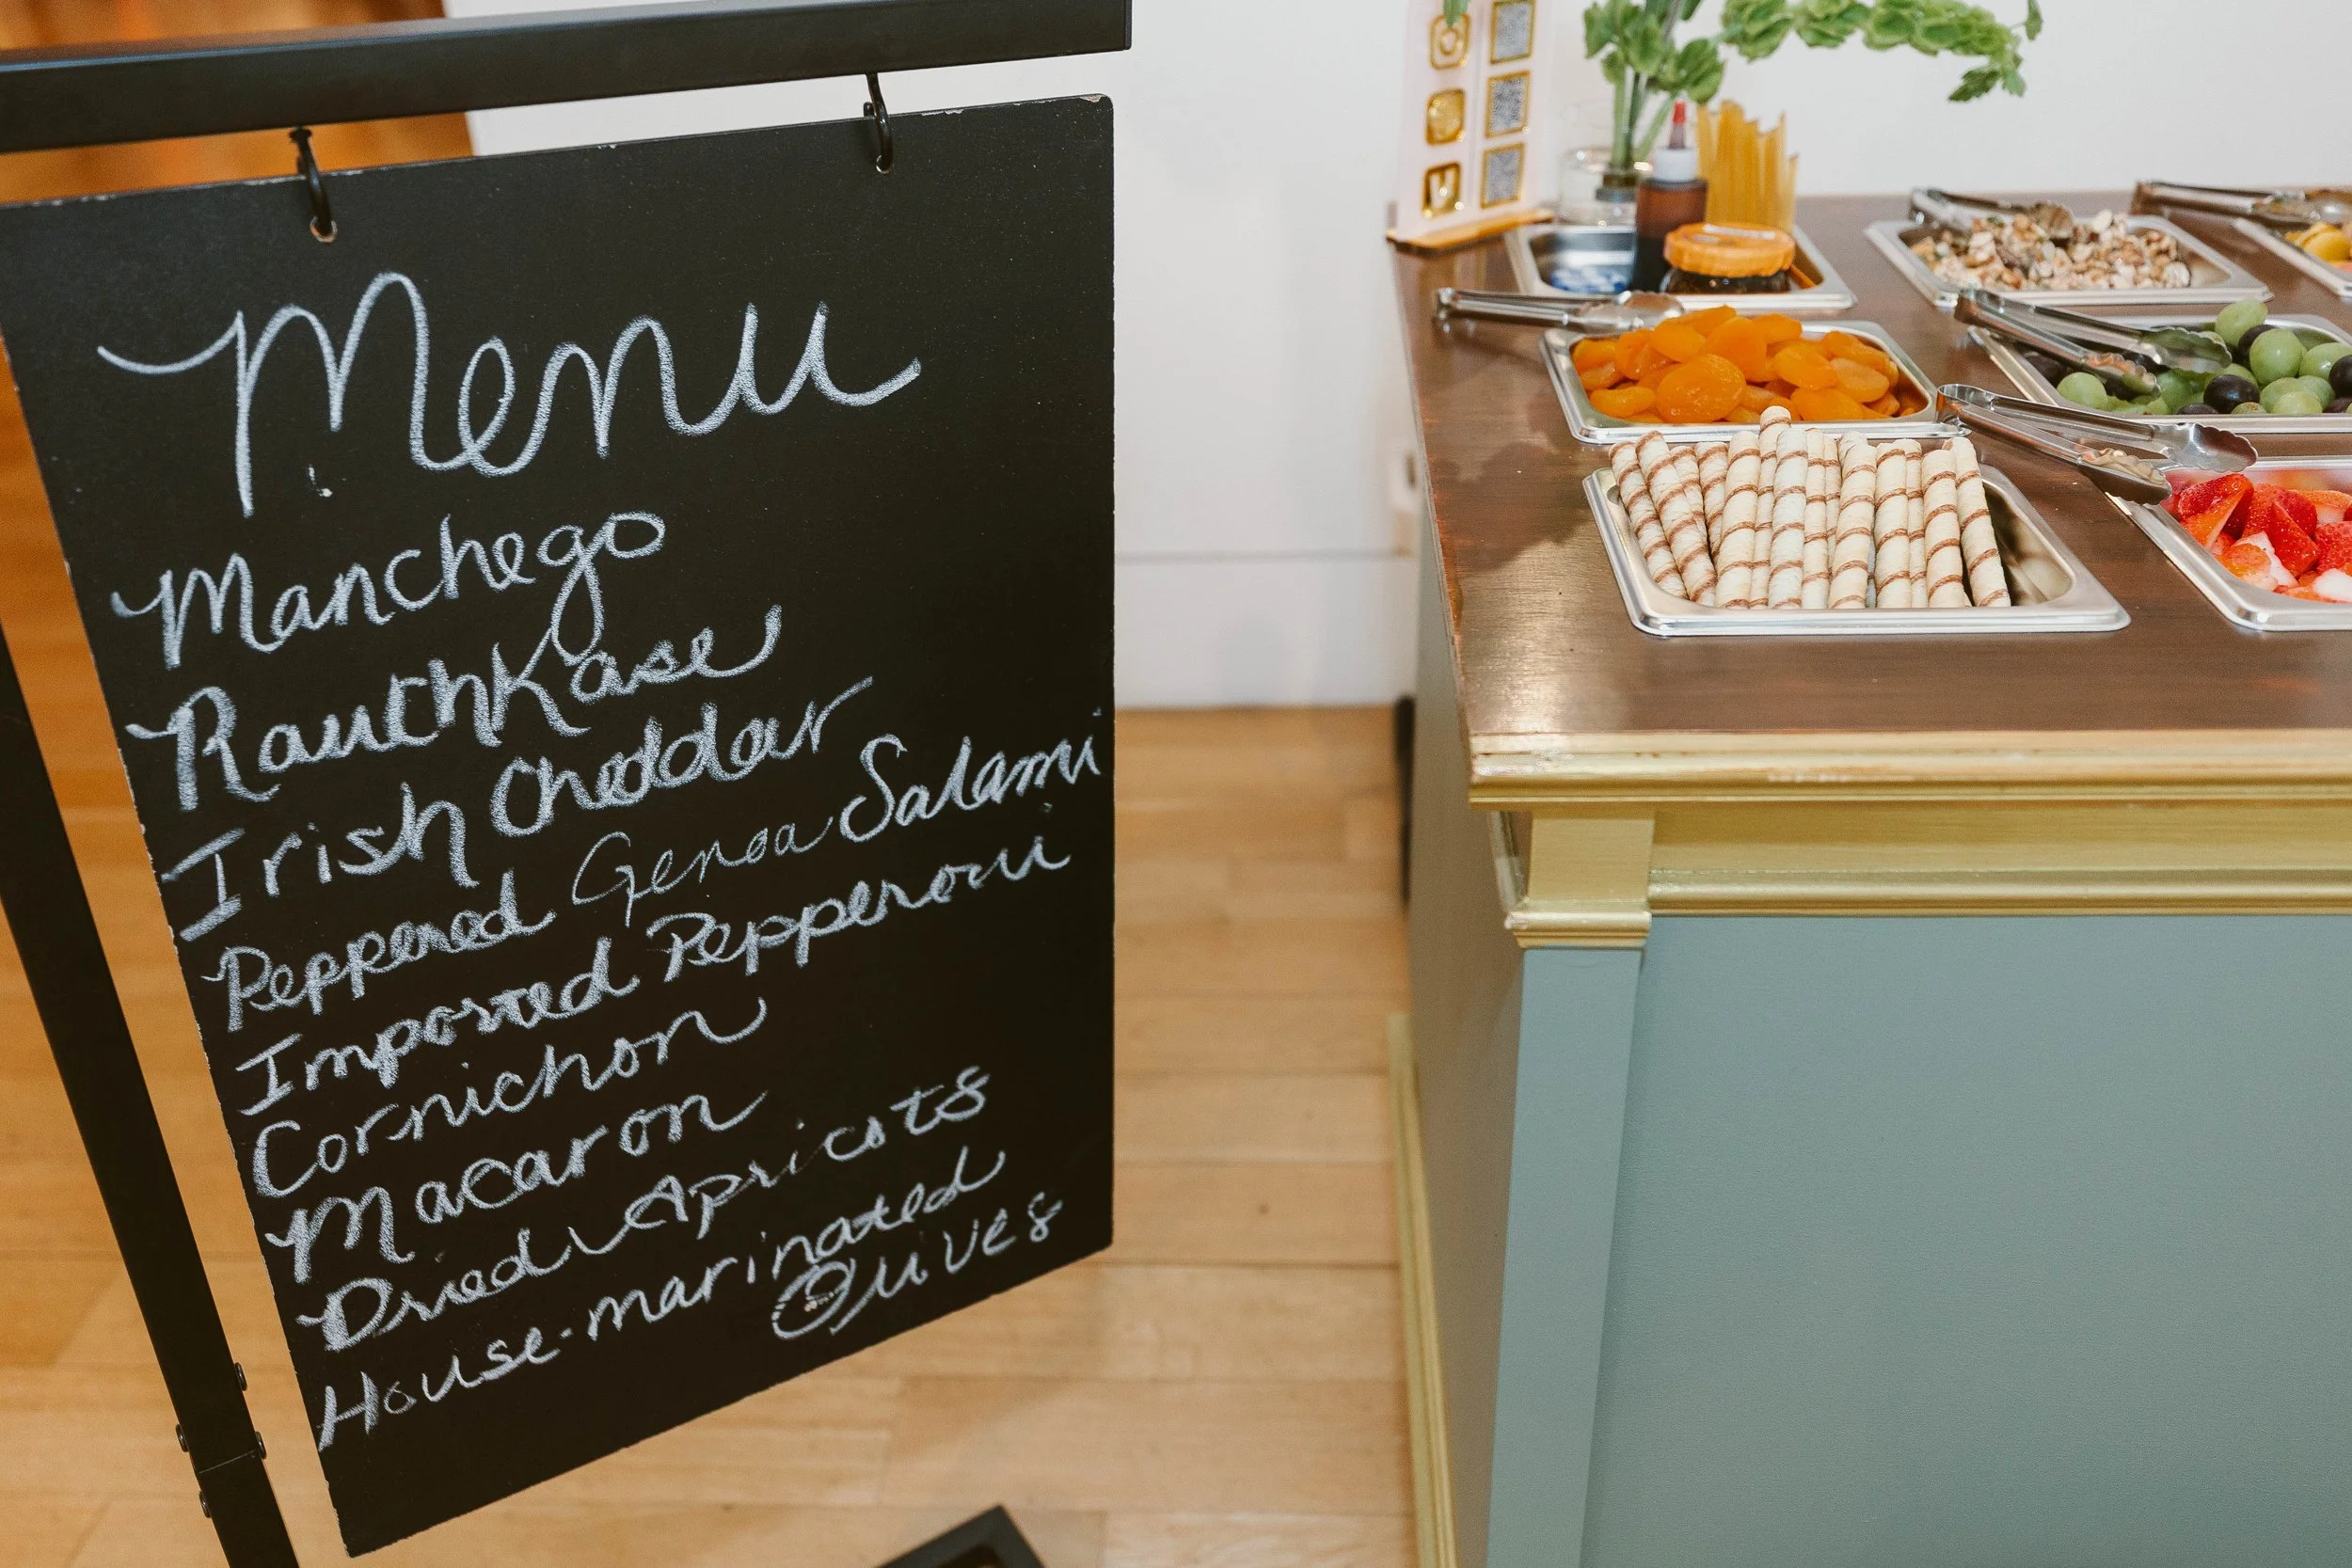 Menu
Manchego
RauchKase
Irish Cheddar
Peppered Genoa Salami
Imported Pepperoni
Cornichon
Macaron
Dried Apricots
House-marinated
Olives